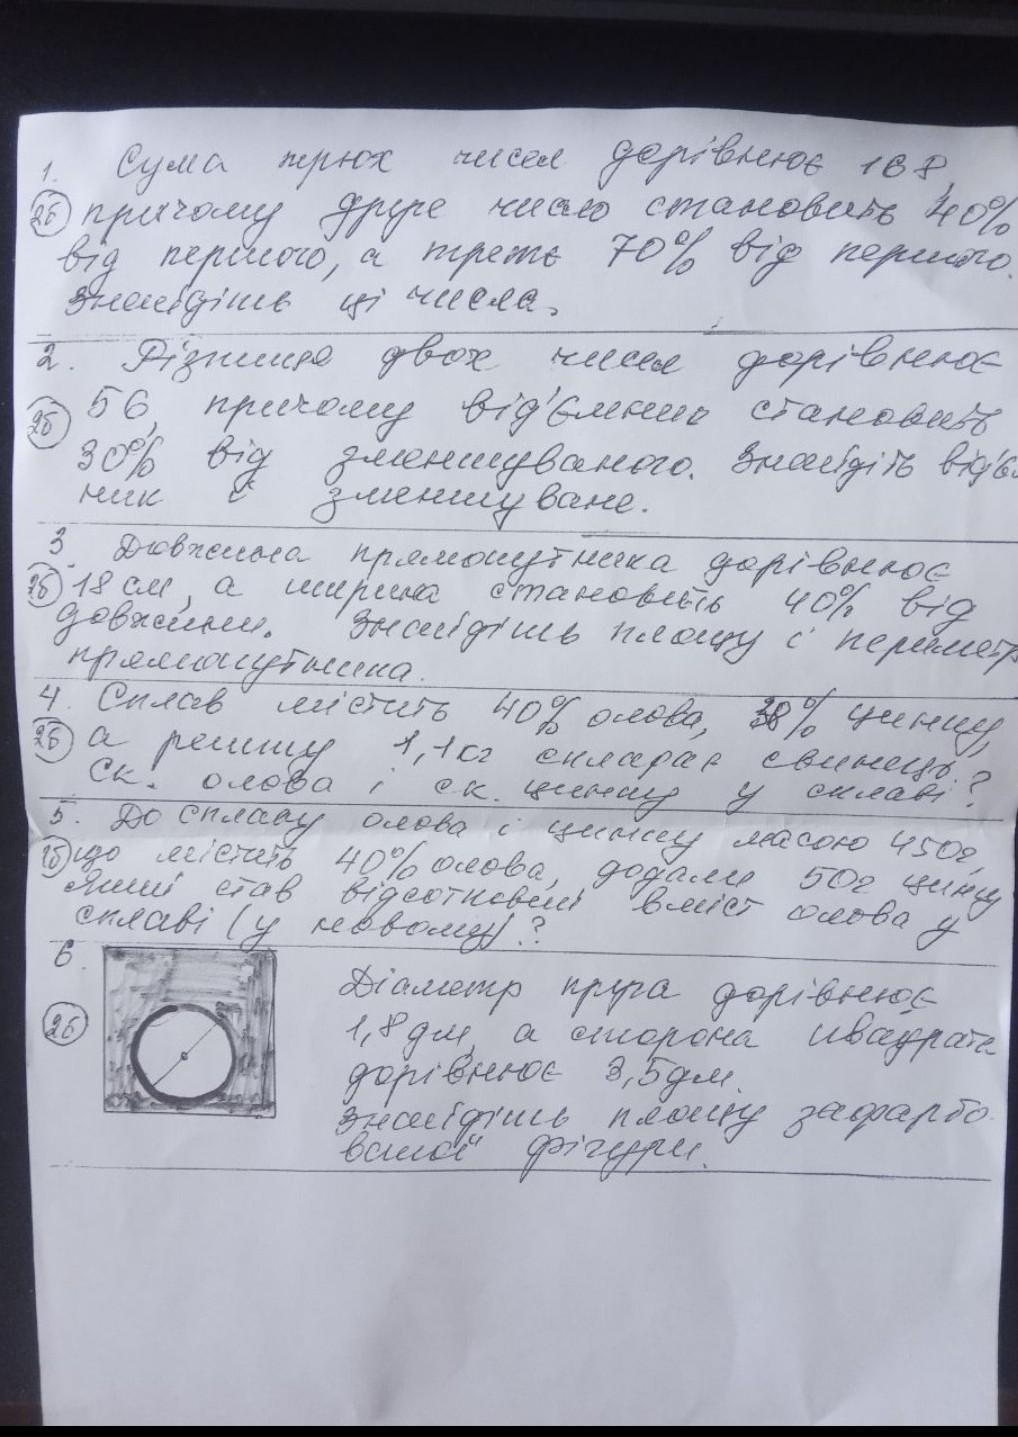 1. Сума трьох чисел дорівнює 168,
2б причому друге число становить 40%
від першого, а третє 70% від першого.
Знайдіть ці числа.
2. Різниця двох чисел дорівнює
2б 56, причому від'ємник становить
30% від зменшуваного. Знайдіть від'єм
ник і зменшуване.
3. Довжина прямокутника дорівнює
2б 18 см, а ширина становить 40% від
довжини. Знайдіть площу і периметр
прямокутника.
4. Сплав містить 40% олова, 38% цинку,
2б а решту 1,1кг складає свинець.
Ск. олова і ск. цинку у сплаві?
5. До сплаву олова і цинку масою 450г,
що містить 40% олова, додали 50г цинку
Який став відсотковий вміст олова у
сплаві (у новому)?
6.
2б Діаметр круга дорівнює
1,8дм, а сторона квадрата
дорівнює 3,5дм.
Знайдіть площу зафарбо
ваної фігури.